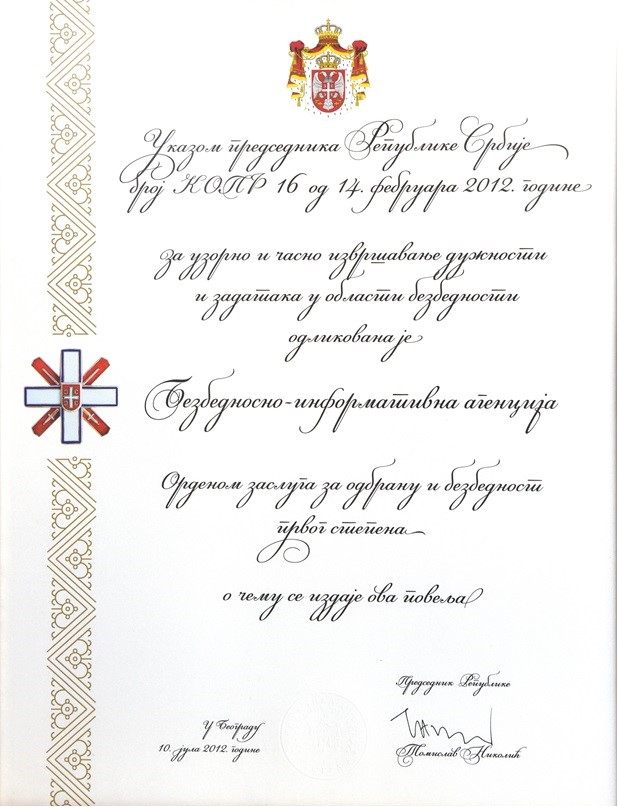 Указом председника Републике Србије
број КОПР 16 од 14. фебруара 2012. године
за узорно и часно извршавање дужности
и задатака у области безбедности
одликована је
Безбедносно-информативна агенција
Орденом заслуга за одбрану и безбедност
првог степена
о чему се издаје ова повеља
Председник Републике
У Београду
10. јула 2012. године
Томислав Николић